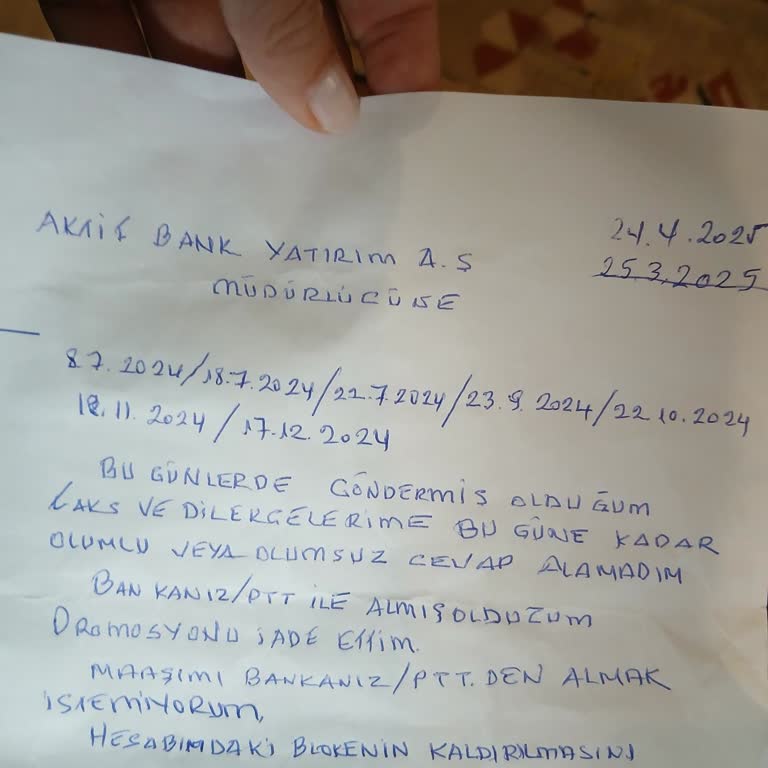 24.4.2025
AKTİF BANK YATIRIM A.Ş
25.3.2025
MÜDÜRLÜĞÜNE
8.7.2024/18.7.2024/22.7.2024/23.9.2024/22.10.2024
18.11.2024/17.12.2024
BU GÜNLERDE GÖNDERMİŞ OLDUĞUM
FAKS VE DİLERGELERİME BU GÜNE KADAR
OLUMLU VEYA OLUMSUZ CEVAP ALAMADIM
BANKANIZ/PTT İLE ALMIŞOLDUĞUM
PROMOSYONU İADE ETTİM.
MAAŞIMI BANKANIZ/PTT.DEN ALMAK
İSTEMİYORUM,
HESABIMDAKİ BLOKENİN KALDIRILMASINI